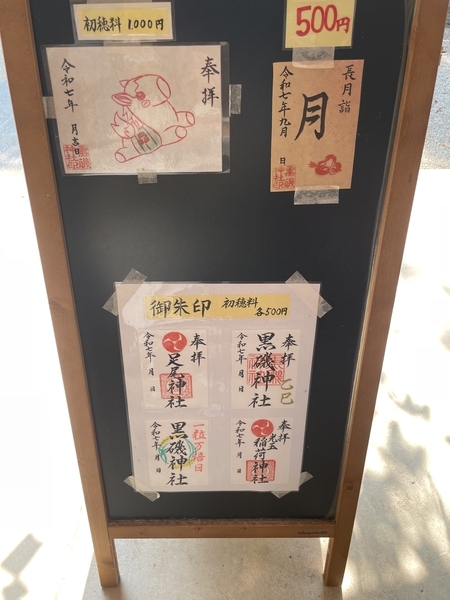 初穂料 1,000円
500円
奉拝
令和七年 月吉日
長月詣
月
令和七年九月 日
御朱印 初穂料 各500円
奉拝
足尾神社
令和七年 月 日
奉拝
黒磯神社
乙巳
令和七年 月 日
一粒万倍日
黒磯神社
令和七年 月 日
奉拝
稲荷神社
令和七年 月 日